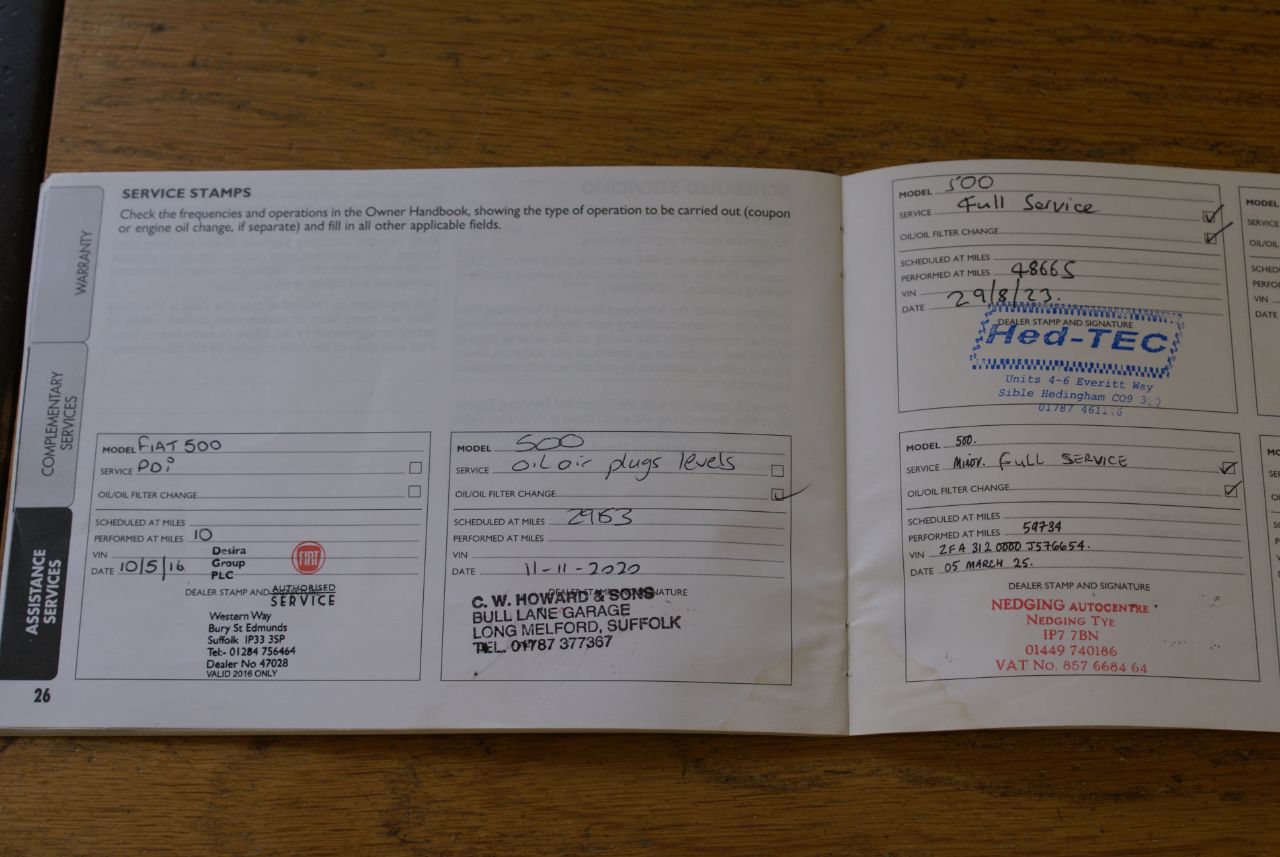 SERVICE STAMPS
Check the frequencies and operations in the Owner Handbook, showing the type of operation to be carried out (coupon
or engine oil change, if separate) and fill in all other applicable fields.
WARRANTY
COMPLEMENTARY
SERVICES
ASSISTANCE
SERVICES
26
MODEL FIAT 500
SERVICE PDi
OIL/OIL FILTER CHANGE
SCHEDULED AT MILES
PERFORMED AT MILES 10
VIN
DATE 10/5/16
Desira
Group
PLC
FIAT
DEALER STAMP AND
AUTHORISED
SERVICE
Western Way
Bury St Edmunds
Suffolk IP33 3SP
Tel:- 01284 756464
Dealer No 47028
VALID 2016 ONLY
MODEL 500
SERVICE oil air plugs levels
OIL/OIL FILTER CHANGE
SCHEDULED AT MILES
PERFORMED AT MILES
VIN
DATE 11-11-2020
DEALER STAMP AND SIGNATURE
C. W. HOWARD & SONS
BULL LANE GARAGE
LONG MELFORD, SUFFOLK
TEL. 01787 377367
MODEL 500
SERVICE Full Service
OIL/OIL FILTER CHANGE
SCHEDULED AT MILES
PERFORMED AT MILES 48665
VIN
DATE 29/8/23.
DEALER STAMP AND SIGNATURE
Hed-TEC
Units 4-6 Everitt Way
Sible Hedingham CO9
01787
MODEL 500.
SERVICE Minor. FULL SERVICE
OIL/OIL FILTER CHANGE
SCHEDULED AT MILES
PERFORMED AT MILES 59734
VIN ZFA 312 0000 J576654.
DATE 05 MARCH 25.
DEALER STAMP AND SIGNATURE
NEDGING AUTOCENTRE
NEDGING TYE
IP7 7BN
01449 740186
VAT No. 857 6684 64
MODEL
SERVICE